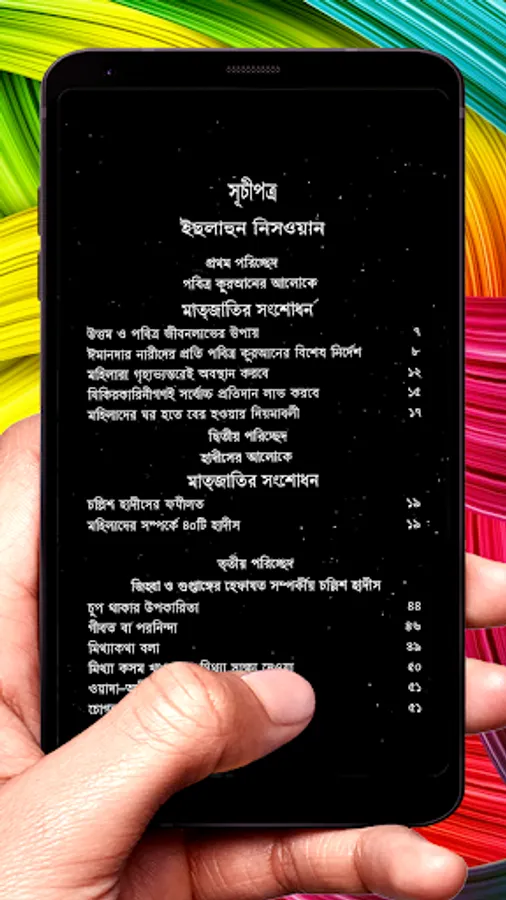 সূচীপত্র
ইছলাহুন নিসওয়ান
প্রথম পরিচ্ছেদ
পবিত্র কুরআনের আলোকে
মাতৃজাতির সংশোধন
উত্তম ও পবিত্র জীবনলাভের উপায় ৭
ঈমানদার নারীদের প্রতি পবিত্র কুরআনের বিশেষ নির্দেশ ৮
মহিলারা গৃহাভ্যন্তরেই অবস্থান করবে ১২
যিকিরকারিনীগণই সর্বোচ্চ প্রতিদান লাভ করবে ১৫
মহিলাদের ঘর হতে বের হওয়ার নিয়মাবলী ১৭
দ্বিতীয় পরিচ্ছেদ
হাদীসের আলোকে
মাতৃজাতির সংশোধন
চল্লিশ হাদীসের ফযীলত ১৯
মহিলাদের সম্পর্কে ৪০টি হাদীস ১৯
তৃতীয় পরিচ্ছেদ
জিহ্বা ও গুপ্তাঙ্গের হেফাযত সম্পর্কীয় চল্লিশ হাদীস
চুপ থাকার উপকারিতা ৪৪
গীবত বা পরনিন্দা ৪৬
মিথ্যাকথা বলা ৪৯
মিথ্যা কসম ৫০
ওয়াদা- ৫১
৫১